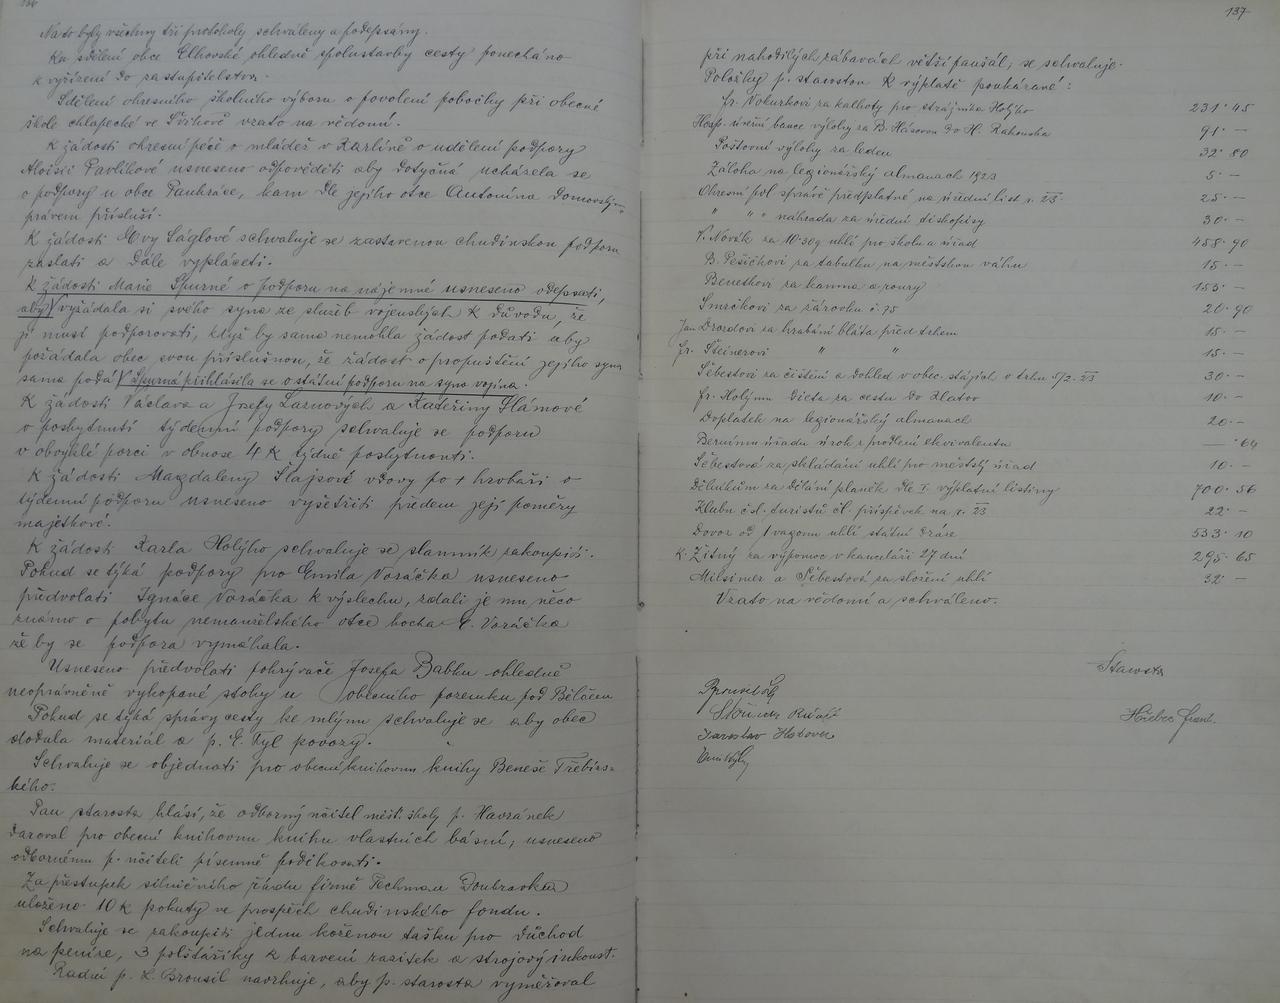 136
Na to byly všechny tři protokoly schváleny a podepsány.
Ku sdělení obce ohledně spolustavby cesty ponecháno
k vyřízení do zastupitelstva.
Sdělení okresního školního výboru o povolení pobočky při obecné
škole chlapecké ve Švihově vzato na vědomí.
K žádosti okresní péče o mládež v Karlíně o udělení podpory
Aloisii Pavlíkové usneseno odpověděti aby dotyčná ucházela se
o podporu u obce Pankráce, kam dle jejího otce Antonína
právem přísluší.
K žádosti Evy Ságlové schvaluje se zastavenou chudinskou podporu
zaslati a dále vypláceti.
K žádosti Marie Spurné o podporu na nájemné usneseno odepsati,
aby vyžádala si svého syna ze služeb vojenských k důvodu, že
ji musí podporovati, když by sama nemohla žádost podati aby
požádala obec svou příslušnou, že žádost o propuštění jejího syna
sama podá Spurná přihlásila se o státní podporu na syna vojína.
K žádosti Václava a Josefy Laznových a Kateřiny Slámové
o poskytnutí týdenní podpory schvaluje se podporu
v obvyklé porci v obnose 4 K týdně poskytnouti.
K žádosti Magdaleny Šlajsové vdovy po + hrobaři o
týdenní podporu usneseno vyšetřiti předem její poměry
majetkové.
K žádosti Karla Holýho schvaluje se slamník zakoupiti.
Pokud se týká podpory pro Emila Voráčka usneseno
předvolati Ignáce Voráčka k výslechu, zdali je mu něco
známo o pobytu nemanželského otce hocha E. Voráčka
že by se podpora vymáhala.
Usneseno předvolati pokrývače Josefa Babku ohledně
neoprávněně vykopané stohy u obecního pozemku pod Bělčem
Pokud se týká správy cesty ke mlýnu schvaluje se aby obec
dodala materiál a p. E. Tyl povozy.
Schvaluje se objednati pro obecní knihovnu knihy Beneše Třebízs-
kého.
Pan starosta hlásí, že odborný učitel měšť. školy p. Havránek
daroval pro obecní knihovnu knihu vlastních básní, usneseno
odbornému p. učiteli písemně poděkovati.
Za přestupek silničního řádu firmě Techman Doubravka
uloženo 10 K pokuty ve prospěch chudinského fondu.
Schvaluje se zakoupiti jednu koženou tašku pro důchod
na peníze, 3 polštáříky k barvení razítek a strojový inkoust.
Radní p. L. Brousil navrhuje, aby p. starosta vyměřoval
137
při nahodilých zábavách větší paušál, se schvaluje.
Položky p. starostou k výplatě poukázané:
Fr. Vokurkovi za kalhoty pro strážníka Holýho 231·45
Hosp. úvěrní bance výlohy za B. do H. Rakouska 91·—
Poštovní výlohy za leden 32·80
Záloha na legionářský almanach 1923 5·—
Okresní pol. správě předplatné na úřední list r. 23. 25·—
" " " náhrada za úřední tiskopisy 30·—
V. Novák za 10·30q uhlí pro školu a úřad 458·90
B. Pešičkovi za tabulku na městskou váhu 15·—
Benetkovi za kamna a roury 153·—
Smrčkovi za žárovku č. 75 20·90
Jan Drozdovi za hrabání bláta před trhem 15·—
Fr. Steinerovi " " 15·—
Šebestovi za čištění a dohled v obec. stájích o trhu 5/2. 23 30·—
Fr. Holýmu dieta za cestu do Klatov 10·—
Doplatek na legionářský almanach 20·—
Bernímu úřadu úrok z prodlení ekvivalentu —·64
Šebestová za skládání uhlí pro městský úřad 10·—
Dělníkům za dělání planěk dle I. výplatní listiny 700·56
Klubu čsl. turistů čl. příspěvek na r. 23 22·—
Dovoz od 1 vagonu uhlí státní dráze 533·10
K. Žitný za výpomoc v kanceláři 27 dní 295·65
Milsimer a Šebestová za složení uhlí 32·—
Vzato na vědomí a schváleno.
Starosta
Brousil
Húbec Frant.
Jaroslav